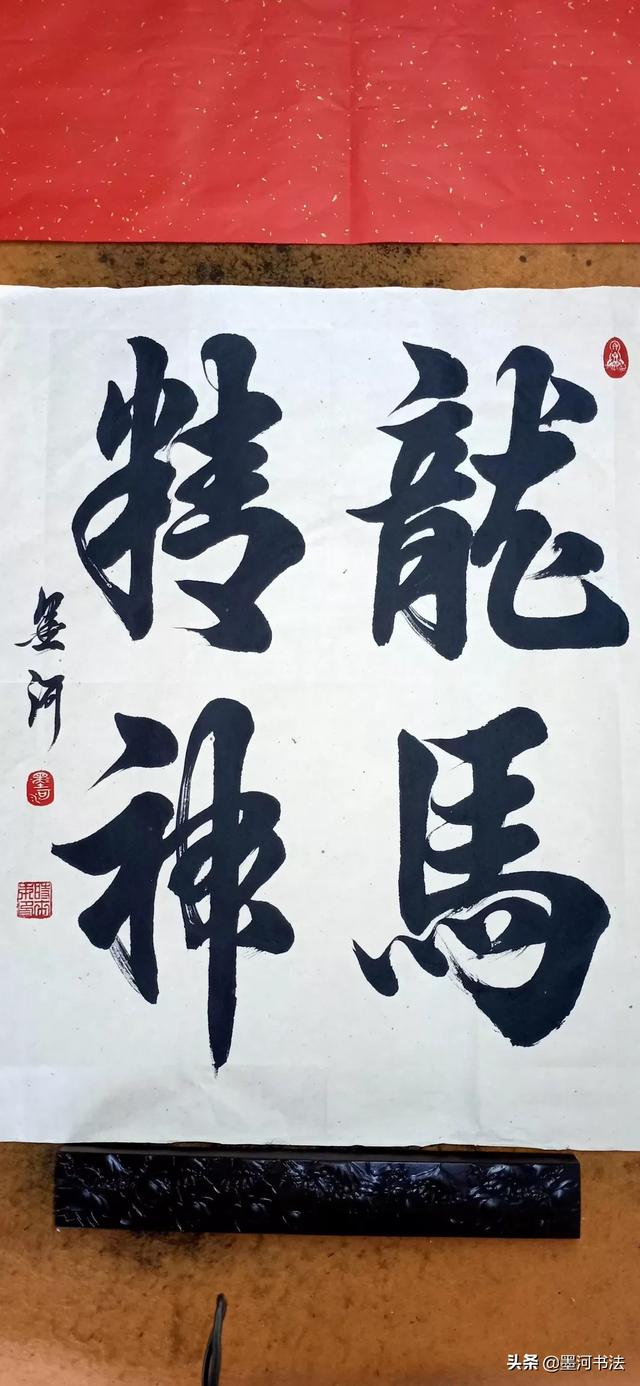 龍馬
精神
墨河
墨河
头条 @墨河书法